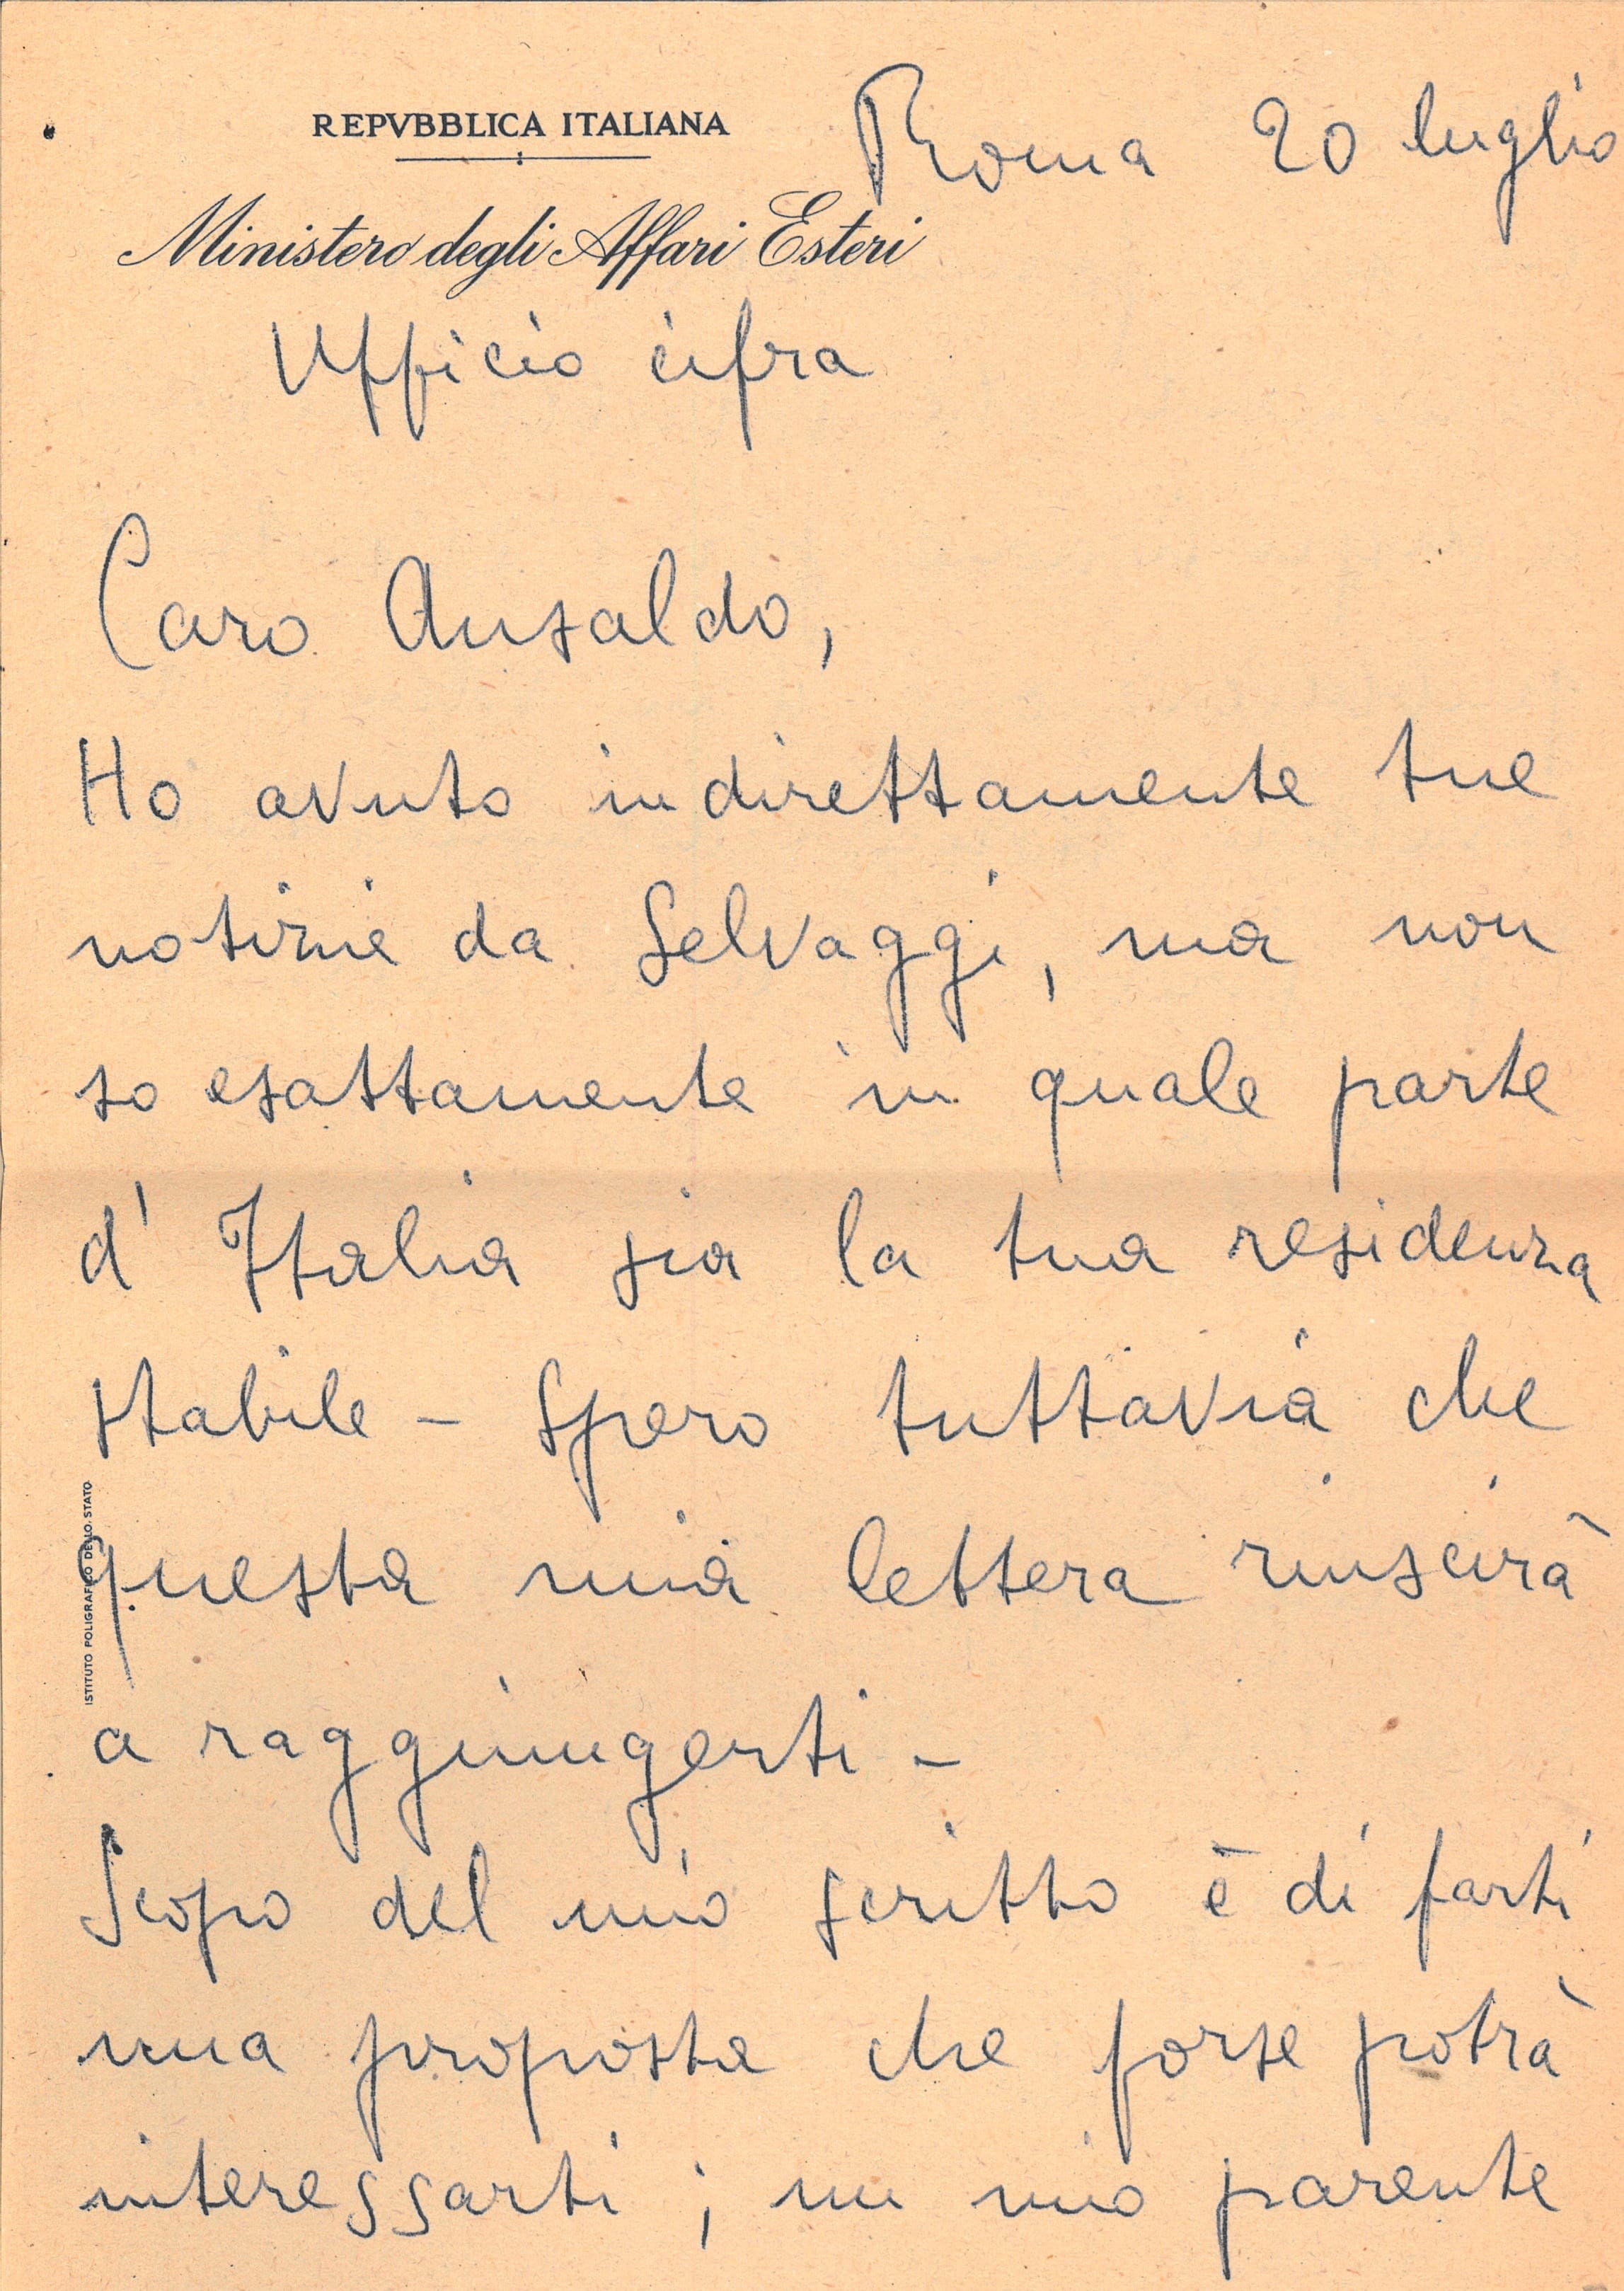 REPVBBLICA ITALIANA
Roma 20 luglio
Ministero degli Affari Esteri
Ufficio cifra
Caro Ansaldo,
Ho avuto indirettamente tue
notizie da Selvaggi, ma non
so esattamente in quale parte
d' Italia sia la tua residenza
stabile - Spero tuttavia che
questa mia lettera riuscirà
a raggiungerti -
Scopo del mio scritto è di farti
una proposta che forse potrà
interessarti; un mio parente
ISTITUTO POLIGRAFICO DELLO STATO